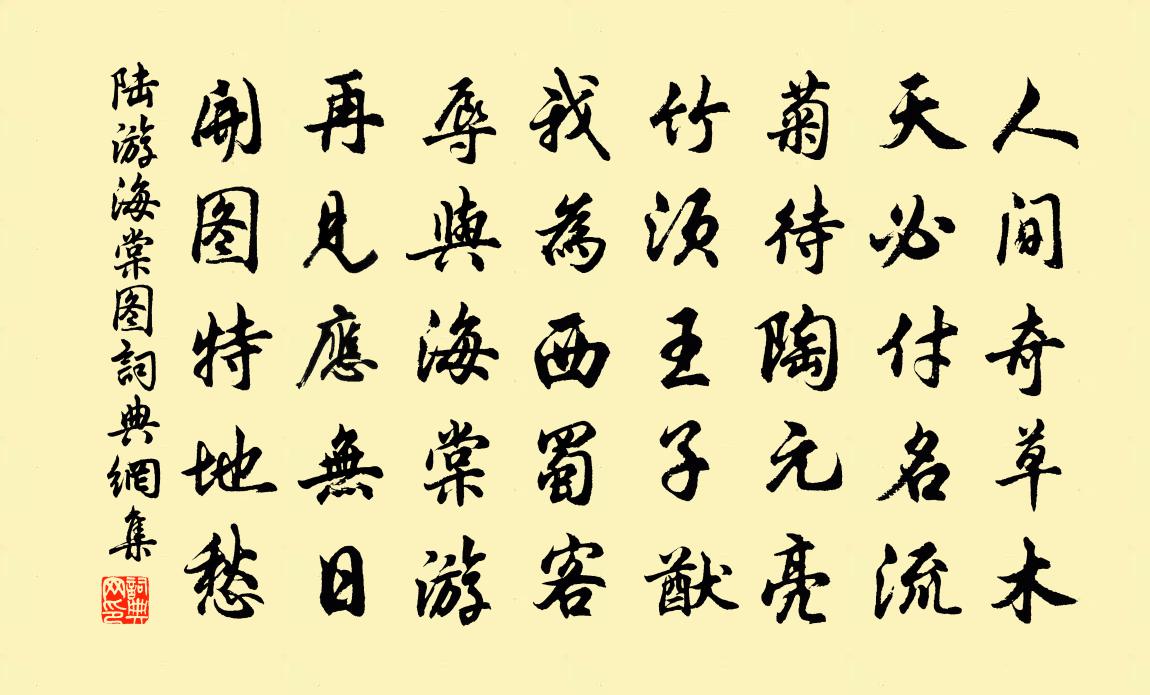 人间奇草木
天必付名流
菊待陶元亮
竹须王子猷
我為西蜀客
辱與海棠游
再見應無日
開图特地愁
陆游海棠图詞典網集
詞典网印